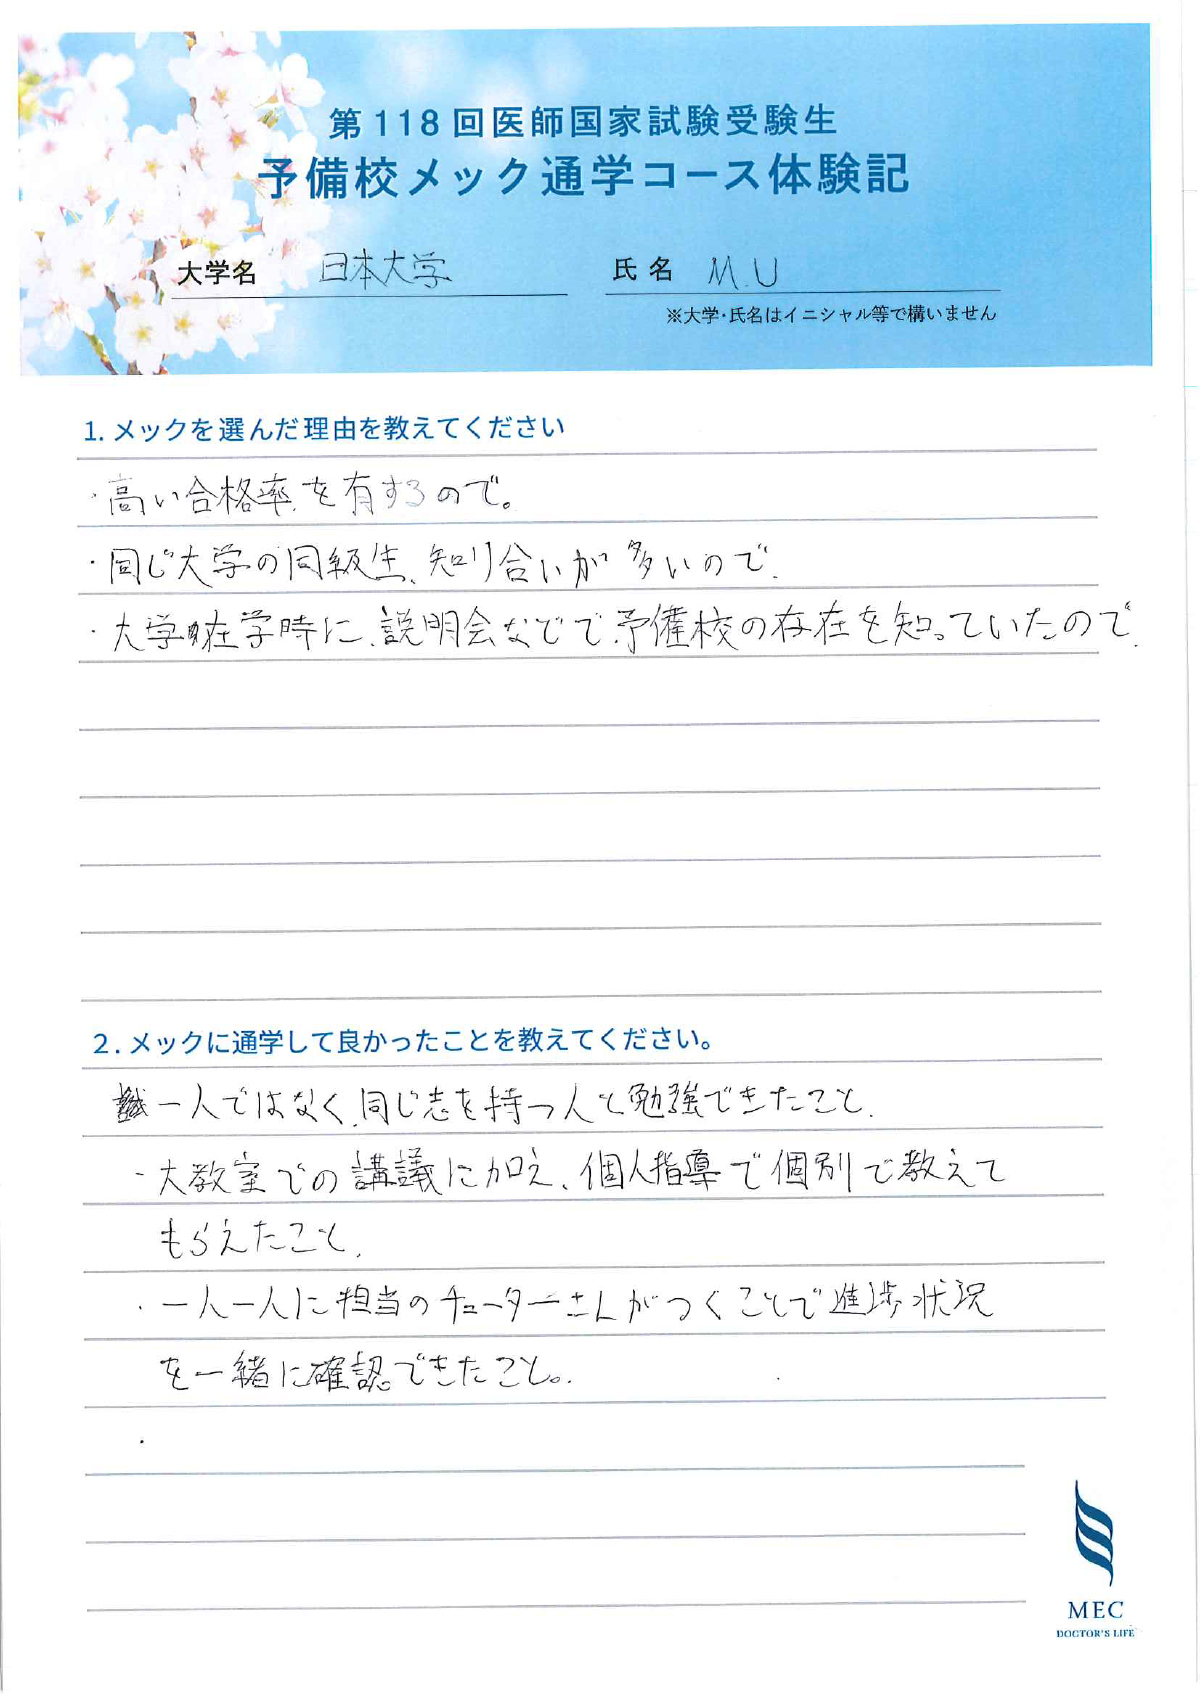 第118回医師国家試験受験生
予備校メック通学コース体験記
大学名 日本大学 氏名 M.U
※大学・氏名はイニシャル等で構いません
1. メックを選んだ理由を教えてください
・高い合格率を有するので。
・同じ大学の同級生、知り合いが多いので.
・大学在学時に、説明会などで予備校の存在を知っていたので.
2. メックに通学して良かったことを教えてください。
一人ではなく、同じ志を持つ人と勉強できたこと.
・大教室での講議に加え、個人指導で個別で教えて
もらえたこと.
・一人一人に担当のチューターさんがつくことで進捗状況
を一緒に確認できたこと。
MEC
DOCTOR'S LIFE